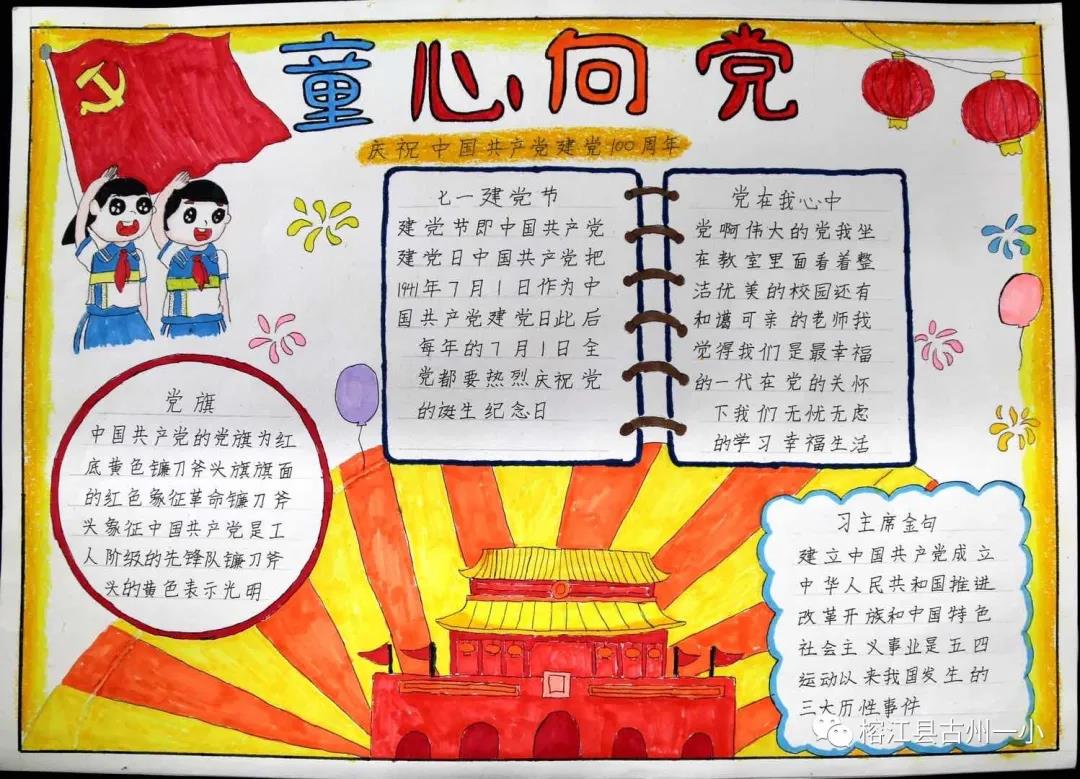 童心向党
庆祝中国共产党建党100周年
七一建党节
建党节即中国共产党
建党日中国共产党把
1941年7月1日作为中
国共产党建党日此后
每年的7月1日全
党都要热烈庆祝党
的诞生纪念日
党在我心中
党啊伟大的党我坐
在教室里面看着整
洁优美的校园还有
和谒可亲的老师我
觉得我们是最幸福
的一代在党的关怀
下我们无忧无虑
的学习幸福生活
党旗
中国共产党的党旗为红
底黄色镰刀斧头旗旗面
的红色象征革命镰刀斧
头象征中国共产党是工
人阶级的先锋队镰刀斧
头的黄色表示光明
习主席金句
建立中国共产党成立
中华人民共和国推进
改革开族和中国特色
社会主义事业是五四
运动以来我国发生的
三大历性事件
榕江县古州一小